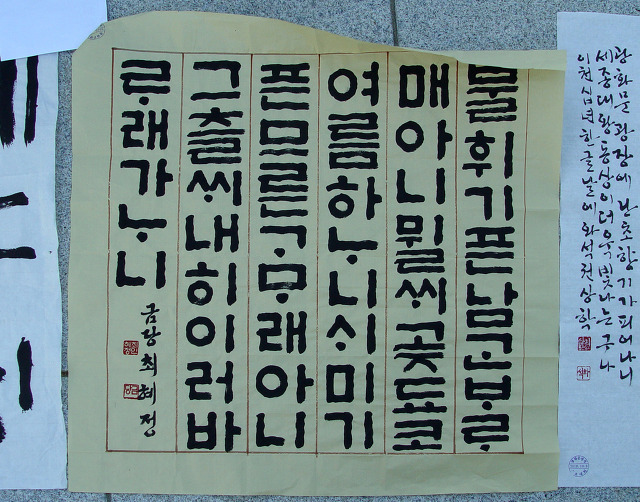 광화문광장에난초향기가피어나니
세종대왕동상이더욱빛나는구나
이천십년한글날에와석
불휘기픈남ᄀᆞᆫᄇᆞᄅᆞ
매아니뮐ᄊᆡ곶됴코
여름하ᄂᆞ니ᄉᆡ미기
픈믈른ᄀᆞᄆᆞ래아니
그츨ᄊᆡ내히이러바
ᄅᆞ래가ᄂᆞ니
금당최혜정